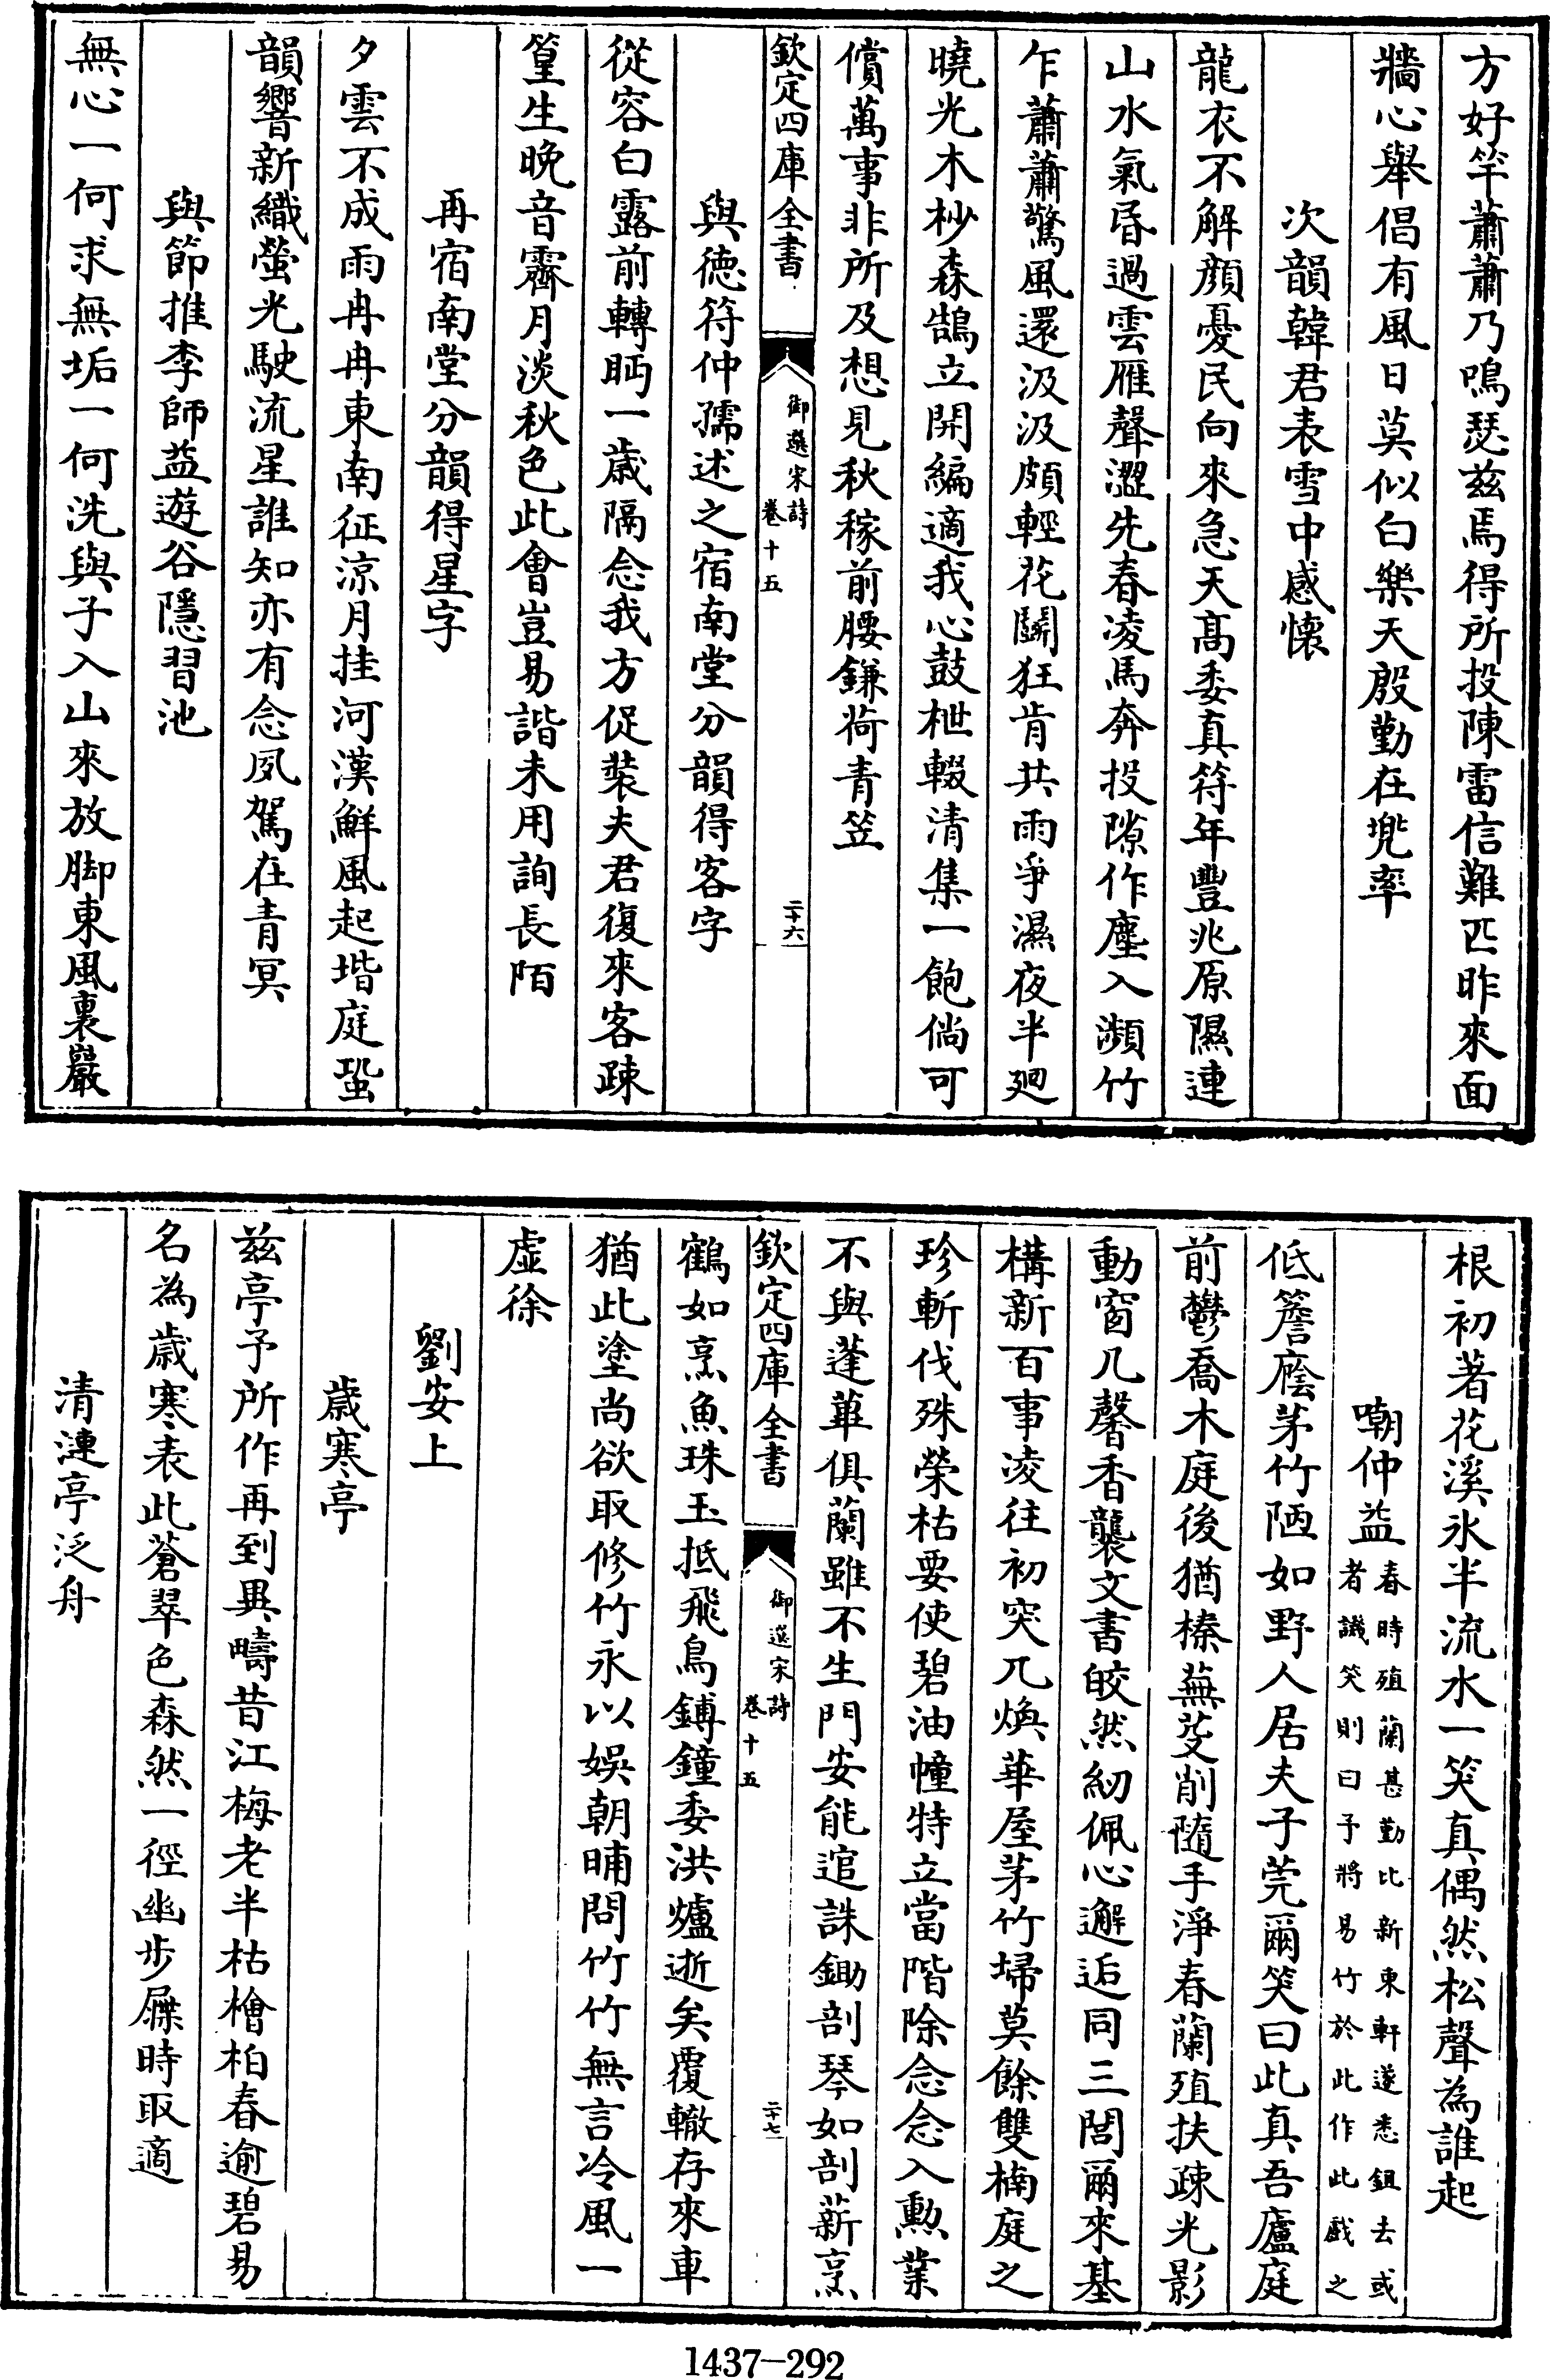 方好竿蕭蕭乃鳴瑟兹焉得所投陳雷信難匹昨來面
牆心舉倡有風日莫似白樂天殷勤在兜率
次韻韓君表雪中感懷
龍衣不解顔憂民向來急天髙委真符年豐兆原隰連
山水氣昏過雲雁聲澀先春凌馬奔投隙作塵入瀕竹
乍蕭蕭驚風還汲汲頗輕花鬭狂肯共雨爭濕夜半廻
曉光木杪森鵠立開編適我心鼓枻輟清集一飽倘可
償萬事非所及想見秋稼前腰鎌荷青笠
欽定四庫全書
御選宋詩
卷十五
二十六
與徳符仲孺述之宿南堂分韻得客字
從容白露前轉眄一歳隔念我方促裝夫君復來客疎
篁生晚音霽月淡秋色此會豈易諧未用詢長陌
再宿南堂分韻得星字
夕雲不成雨冉冉東南征涼月挂河漢鮮風起堦庭蛩
韻響新織螢光駛流星誰知亦有念夙駕在青冥
與節推李師益遊谷隱習池
無心一何求無垢一何洗與子入山來放脚東風裏巖
根初著花溪氷半流水一笑真偶然松聲為誰起
嘲仲益
春時殖蘭甚勤比新東軒遂悉鉏去或
者譏笑則曰予將易竹於此作此戲之
低簷廕茅竹陋如野人居夫子莞爾笑曰此真吾廬庭
前鬱喬木庭後猶榛蕪芟削隨手淨春蘭殖扶疎光影
動窗几馨香襲文書皎然紉佩心邂逅同三閭爾來基
構新百事凌往初突兀煥華屋茅竹埽莫餘雙楠庭之
珍斬伐殊榮枯要使碧油幢特立當階除念念入勲業
不與蓬蓽俱蘭雖不生門安能逭誅鋤剖琴如剖薪烹
欽定四庫全書
御選宋詩
卷十五
二十七
鶴如烹魚珠玉抵飛鳥鎛鐘委洪爐逝矣覆轍存來車
猶此塗尚欲取修竹永以娛朝晡問竹竹無言冷風一
虚徐
劉安上
歳寒亭
兹亭予所作再到異疇昔江梅老半枯檜柏春逾碧易
名為歳寒表此蒼翠色森然一徑幽步屧時取適
清漣亭泛舟
1437—292